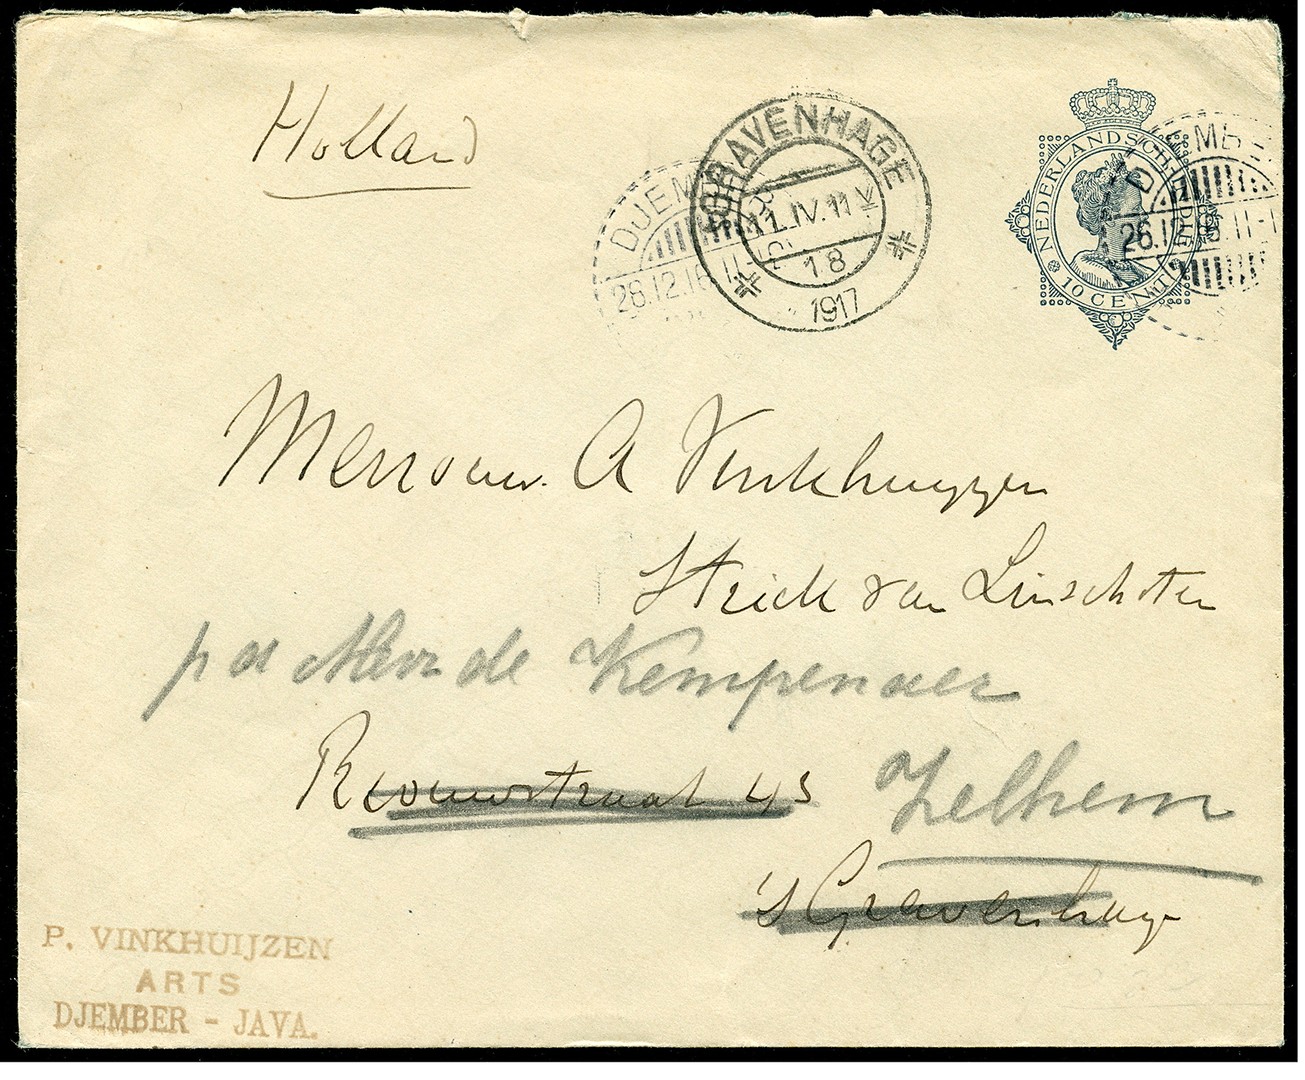 Holland
DJEM
26.12.16.11-12
'SGRAVENHAGE
11.IV.11 V
18
1917
NEDERLANDSCH-INDIE
10 CENT
MB
26.12.16.11-1
Mevrouw A Vinkhuyzen
Strick van Linschoten
p a Mevr de Kempenaer
Riouwstraat 43
Zelhem
's Gravenhage
P. VINKHUIJZEN
ARTS
DJEMBER - JAVA.